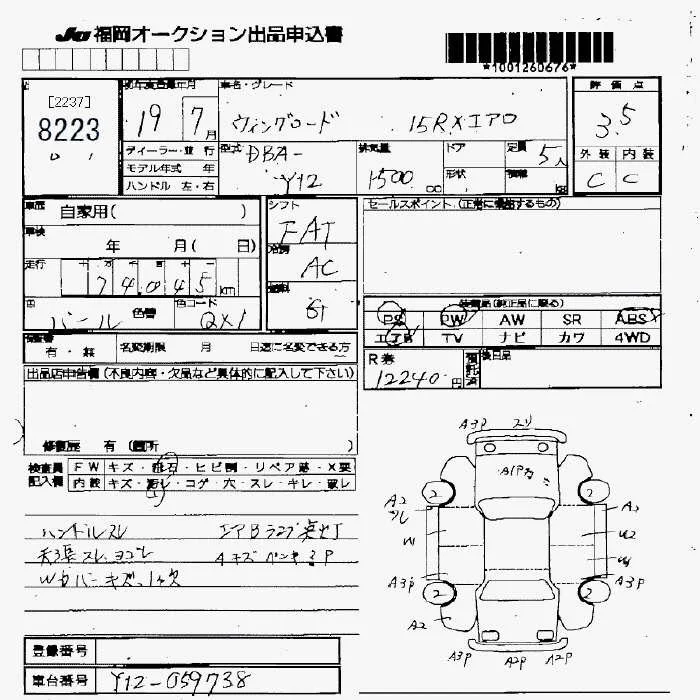 JU 福岡オークション出品申込書
*1001260676*
[2237]
8223
初年度登録年月
19 7月
車名・グレード
ウィングロード 15RXエアロ
評価点
3.5
外装 内装
C C
ディーラー・並行
モデル年式 年
ハンドル 左・右
型式 DBA-
Y12
排気量
1500 cc
ドア
形状
定員 5人
積載 kg
車歴 自家用( )
車検
年 月( 日)
走行
十 万 千 百 十
74045 km
色 パール 色替 色コード QX1
シフト
FAT
冷房
AC
燃料
G
セールスポイント (正常に機能するもの)
装備品(純正品に限る)
PS PW AW SR ABS
エアB TV ナビ カワ 4WD
有・無 名変期限 月 日迄に名変できる方
R券
12240円
預託済
後日品
出品店申告欄(不良内容・欠品など具体的に記入して下さい)
修復歴 有(箇所 )
検査員記入欄
FW キズ・飛石・ヒビ割・リペア跡・X要
内装 キズ・汚レ・コゲ・穴・スレ・キレ・破レ
ハンドルスレ エアBランプ点灯
天張スレ、ヨゴレ Aキズ ペンキ P
Wカバーキズ、1ヶ欠
A3P スリ
A1P
A2 2 2 A2
W U2
W
A3P 2 2 A3P
A2
A3P A2P A2P
登録番号
車台番号 Y12-059738